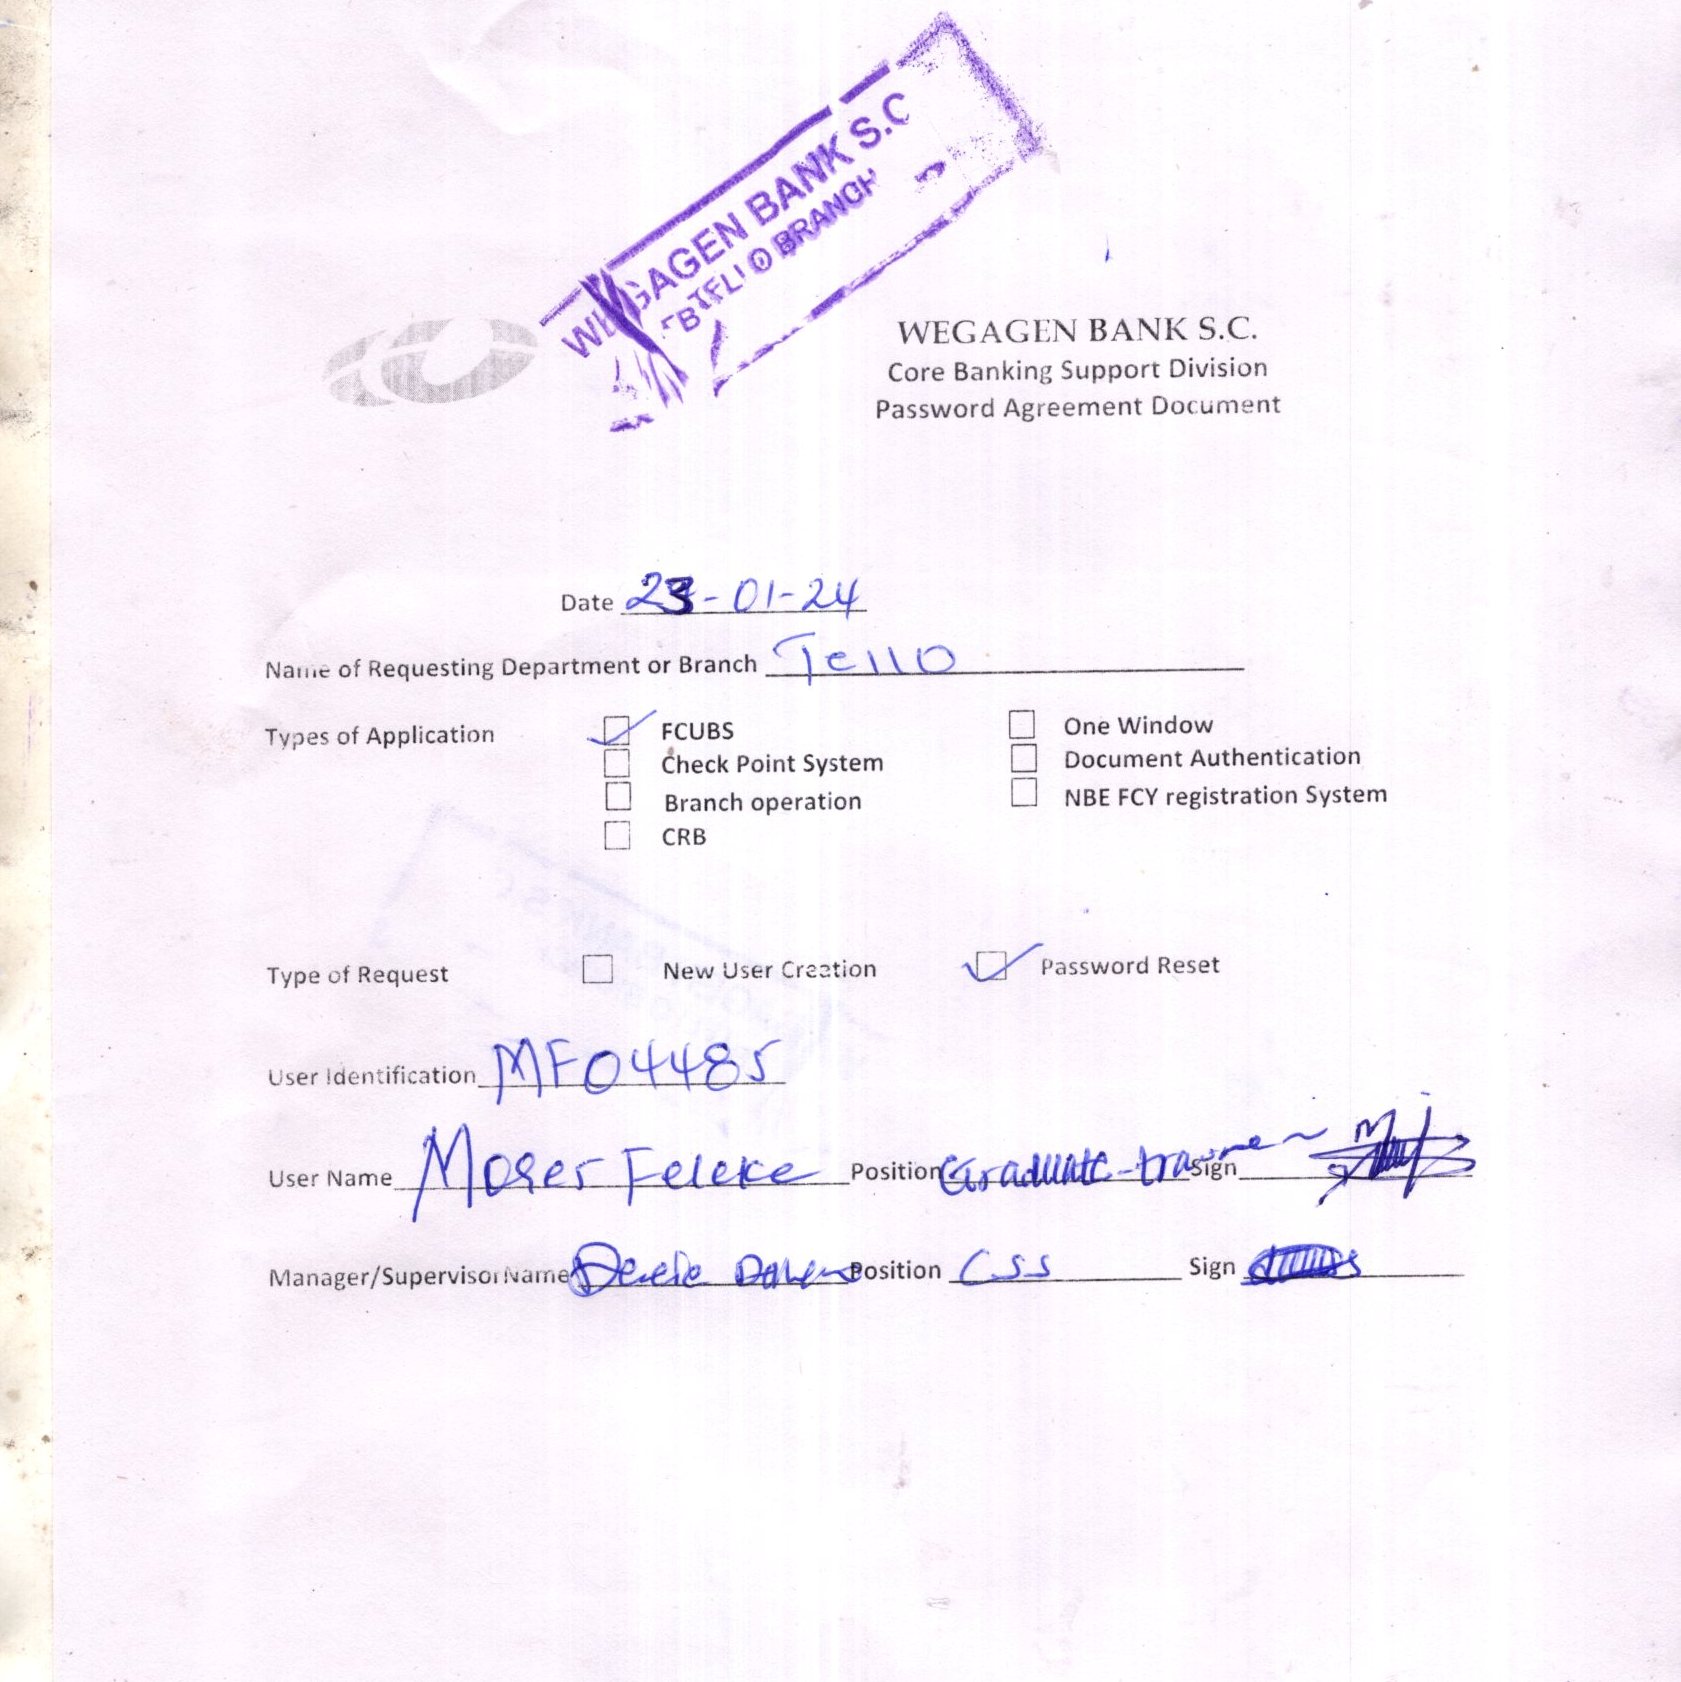 WEGAGEN BANK S.C
TELLO BRANCH
WEGAGEN BANK S.C.
Core Banking Support Division
Password Agreement Document
Date 23-01-24
Name of Requesting Department or Branch Tello
Types of Application FCUBS One Window
Check Point System Document Authentication
Branch operation NBE FCY registration System
CRB
Type of Request New User Creation Password Reset
User Identification MF04485
User Name Moser Feleke Position Graduate Sign
Manager/Supervisor Name Position CSS Sign